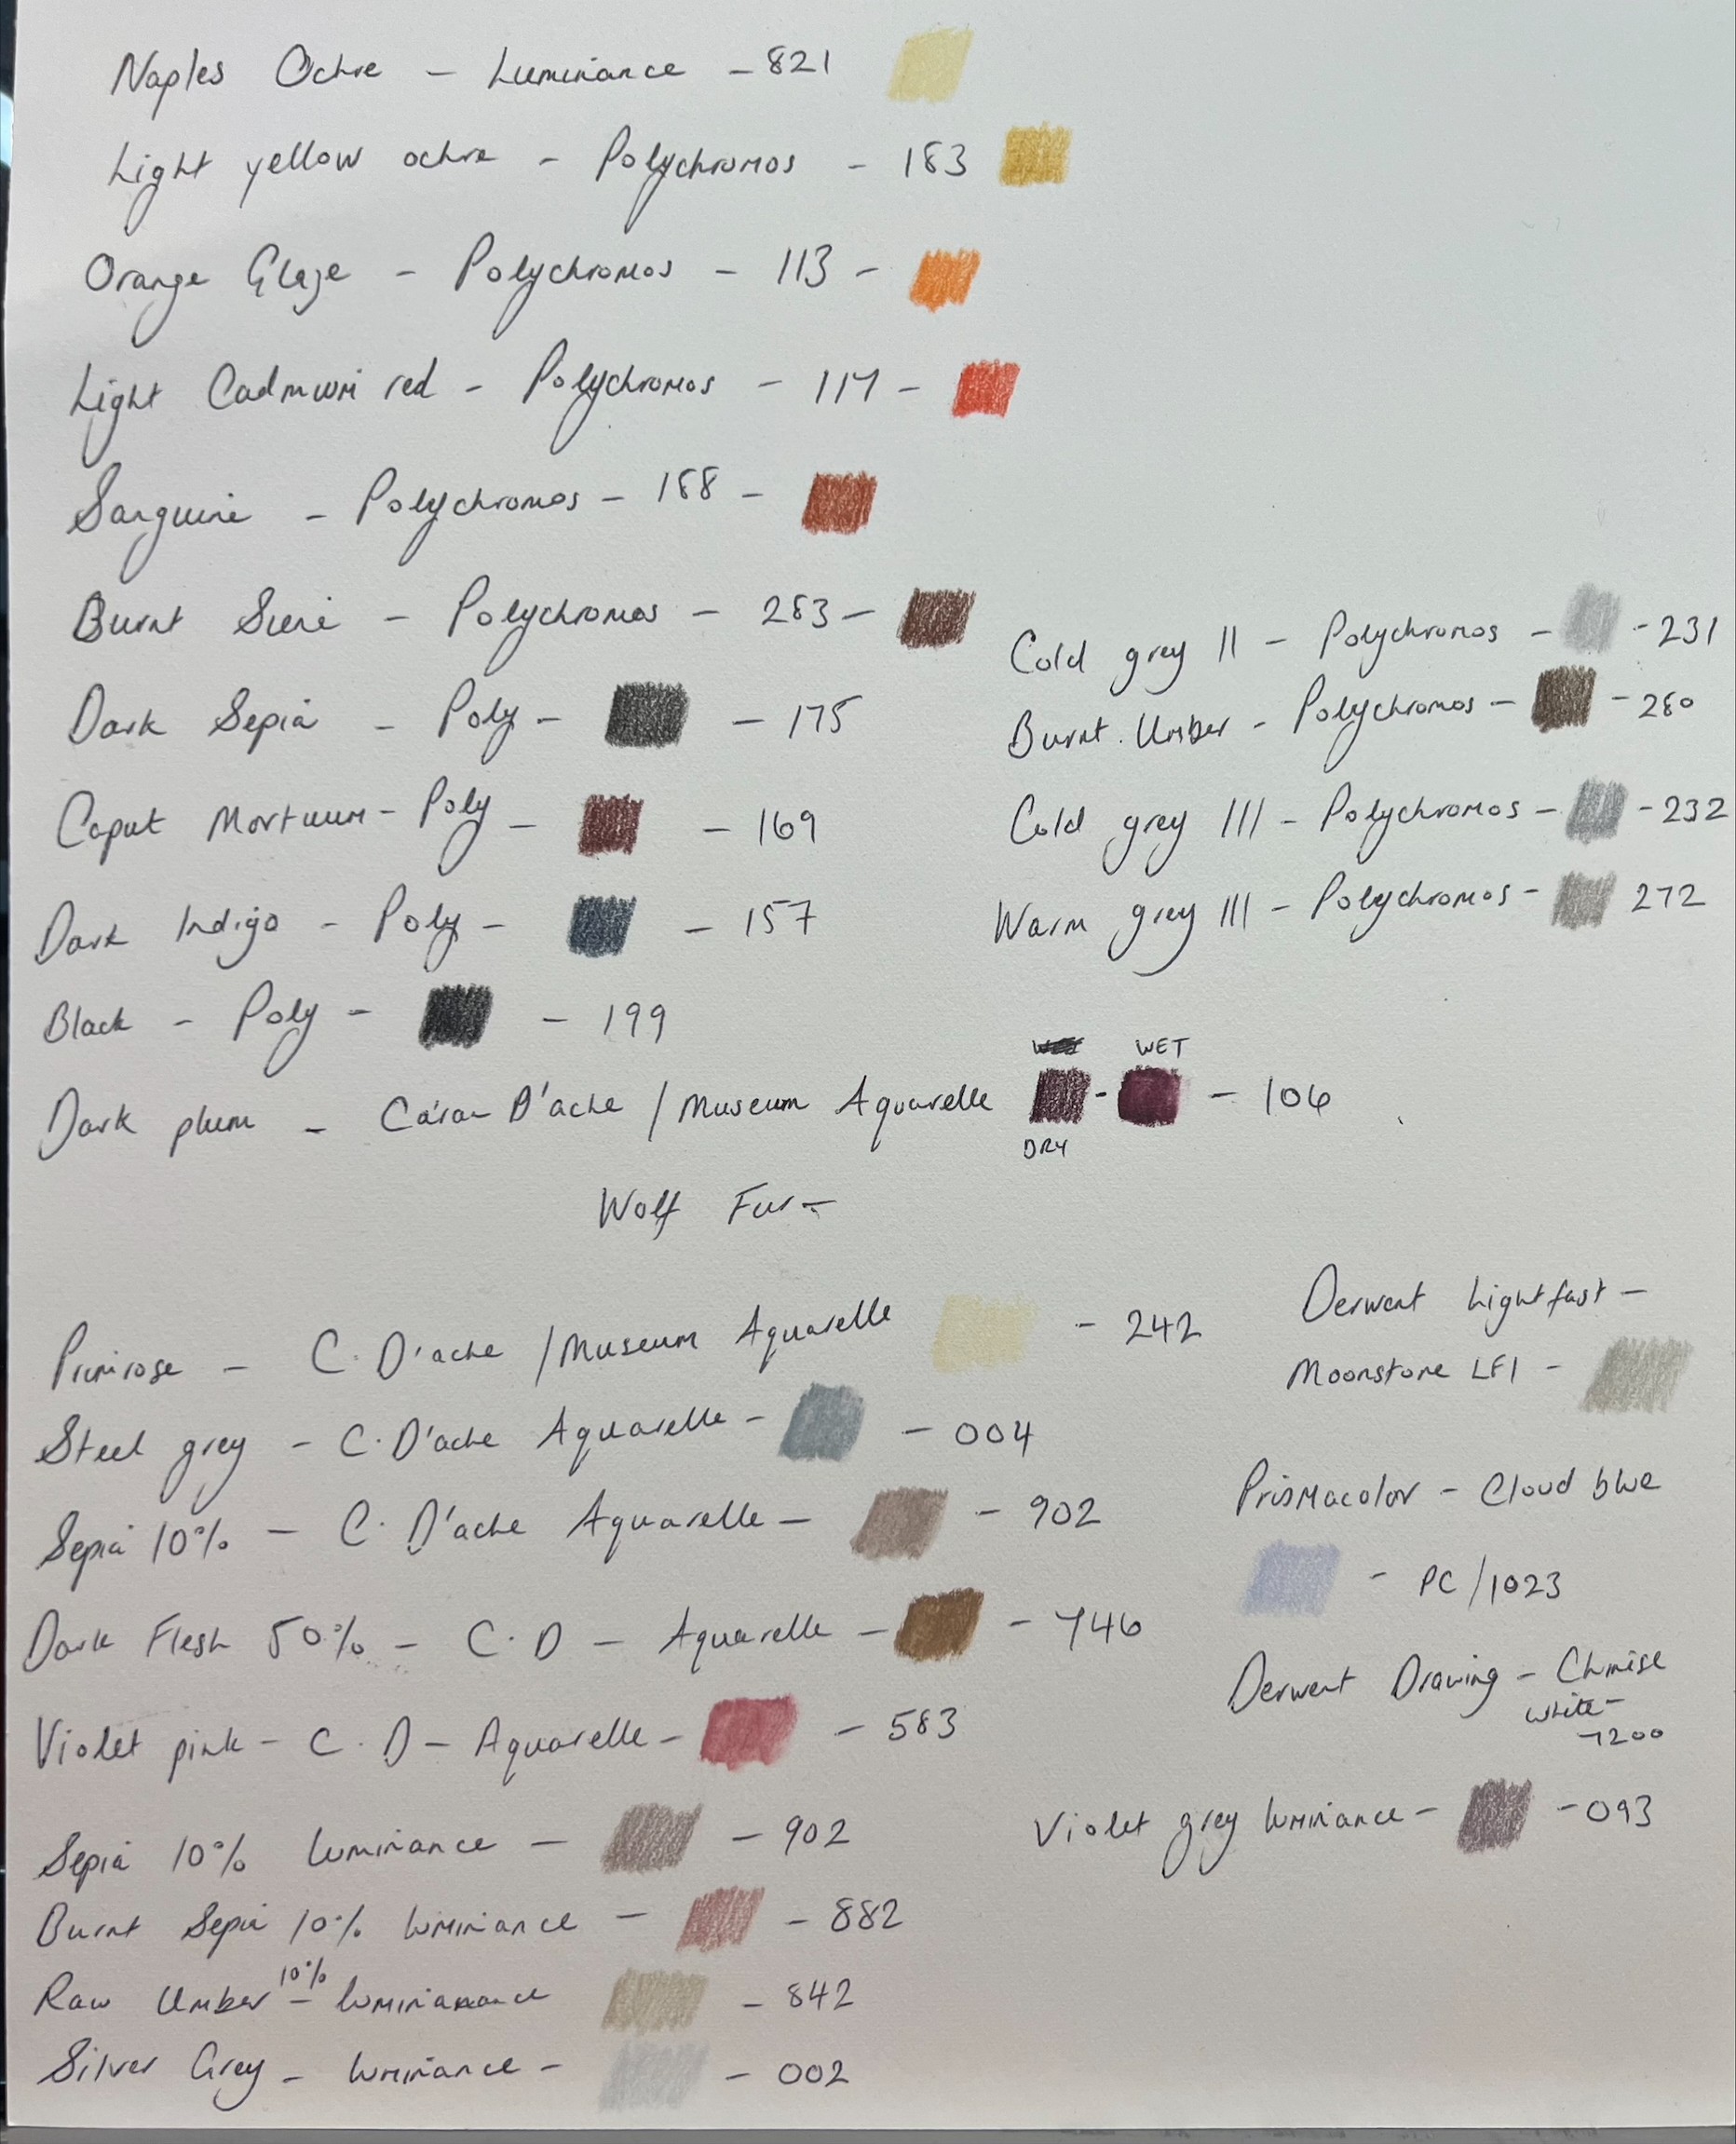 Naples Ochre - Luminance - 821
Light yellow ochre - Polychromos - 183
Orange Glaze - Polychromos - 113 -
Light Cadmium red - Polychromos - 117 -
Sanguine - Polychromos - 188 -
Burnt Siene - Polychromos - 283 -
Dark Sepia - Poly - - 175
Caput Mortuum - Poly - - 169
Dark Indigo - Poly - - 157
Black - Poly - - 199
Cold grey II - Polychromos - - 231
Burnt Umber - Polychromos - - 280
Cold grey III - Polychromos - - 232
Warm grey III - Polychromos - 272
WET
Dark plum - Caran D'ache / Museum Aquarelle - - 106
DRY
Wolf Fur -
Primrose - C. D'ache / Museum Aquarelle - 242
Steel grey - C. D'ache Aquarelle - - 004
Sepia 10% - C. D'ache Aquarelle - - 902
Dark Flesh 50% - C. D - Aquarelle - - 746
Violet pink - C. D - Aquarelle - - 583
Sepia 10% luminance - - 902
Burnt Sepia 10% luminance - - 882
10%
Raw Umber - - 842
Silver Grey - luminance - - 002
Derwent Lightfast -
Moonstone LF1 -
Prismacolor - Cloud blue
- PC/1023
Derwent Drawing -
white -
7200
Violet grey luminance - - 093